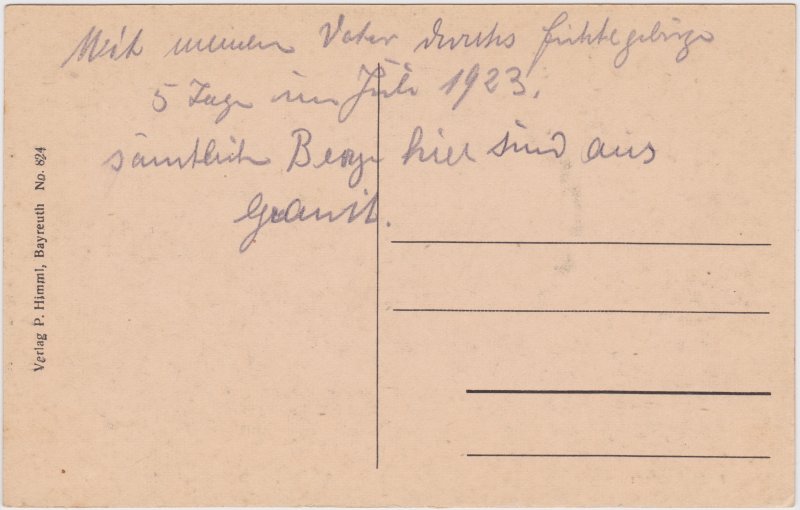 Mit meinem Vater durchs Fichtelgebirge
5 Tage im Juli 1923.
sämtlich Berge hier sind aus
Granit.
Verlag P. Himml, Bayreuth No. 624